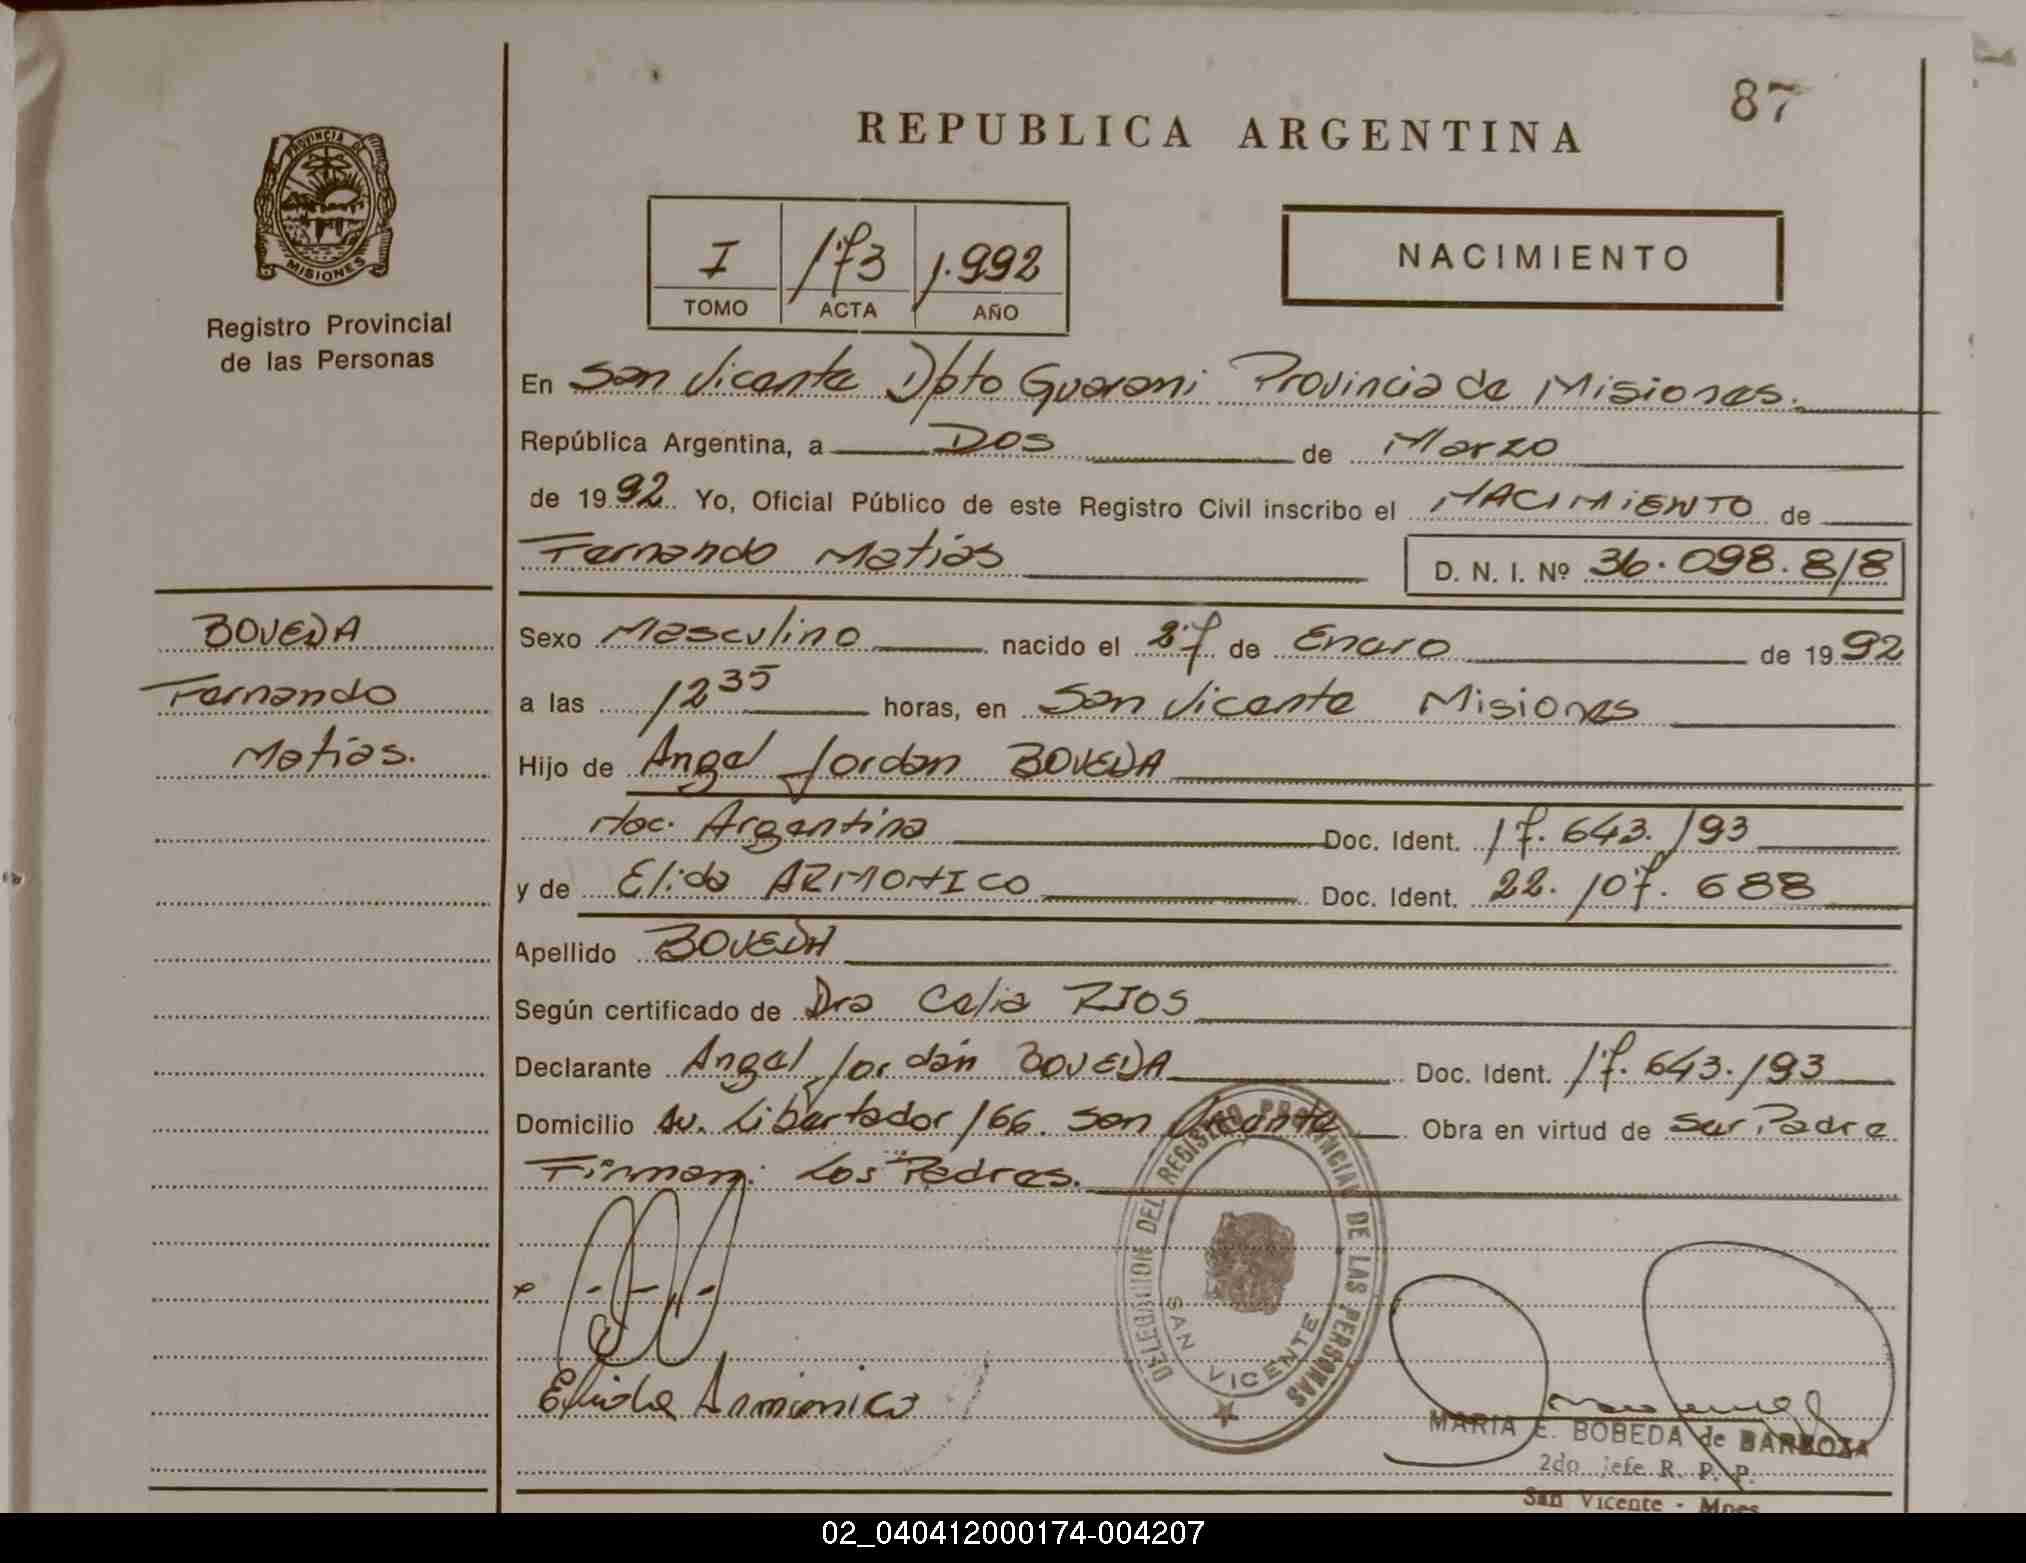 87
REPUBLICA ARGENTINA
PROVINCIA DE
MISIONES
Registro Provincial
de las Personas
I 173 1.992
TOMO ACTA AÑO
NACIMIENTO
En San Vicente Dpto Guarani Provincia de Misiones.
República Argentina, a Dos de Marzo
de 1992 Yo, Oficial Público de este Registro Civil inscribo el NACIMIENTO de
Fernando Matías D. N. I. Nº 36.098.818
BOVEDA
Fernando
Matías.
Sexo Masculino nacido el 27 de Enero de 1992
a las 12 35 horas, en San Vicente Misiones
Hijo de Angel Jordan BOVEDA
Nac. Argentina Doc. Ident. 17.643.193
y de Elida ARMONICO Doc. Ident. 22.107.688
Apellido BOVEDA
Según certificado de Dra Celia RIOS
Declarante Angel Jordán BOVEDA Doc. Ident. 17.643.193
Domicilio Av. Libertador 166. San Vicente Obra en virtud de Ser Padre
Firman: Los Padres.
DELEGACION DEL REGISTRO PROVINCIAL DE LAS PERSONAS
SAN VICENTE
Elida Armonico
MARIA E. BOBEDA de BARBOZA
2do Jefe R. P. P.
San Vicente - Mnes
02_040412000174-004207